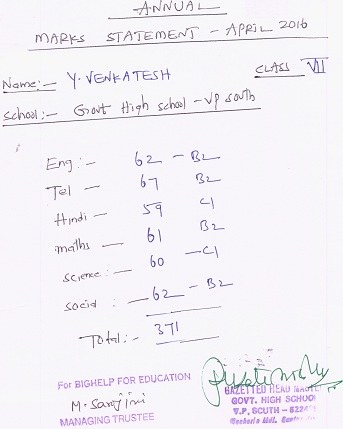 ANNUAL
MARKS STATEMENT - APRIL 2016
Name:- Y. VENKATESH CLASS VII
School:- Govt High school - VP south
Eng:- 62 - B2
Tel - 67 B2
Hindi - 59 C1
maths - 61 B2
Science: - 60 - C1
social :- 62 - B2
Total:- 371
For BIGHELP FOR EDUCATION
M. Sarojini
MANAGING TRUSTEE
GAZETTED HEAD MASTER
GOVT. HIGH SCHOOL
V.P. SOUTH - 522